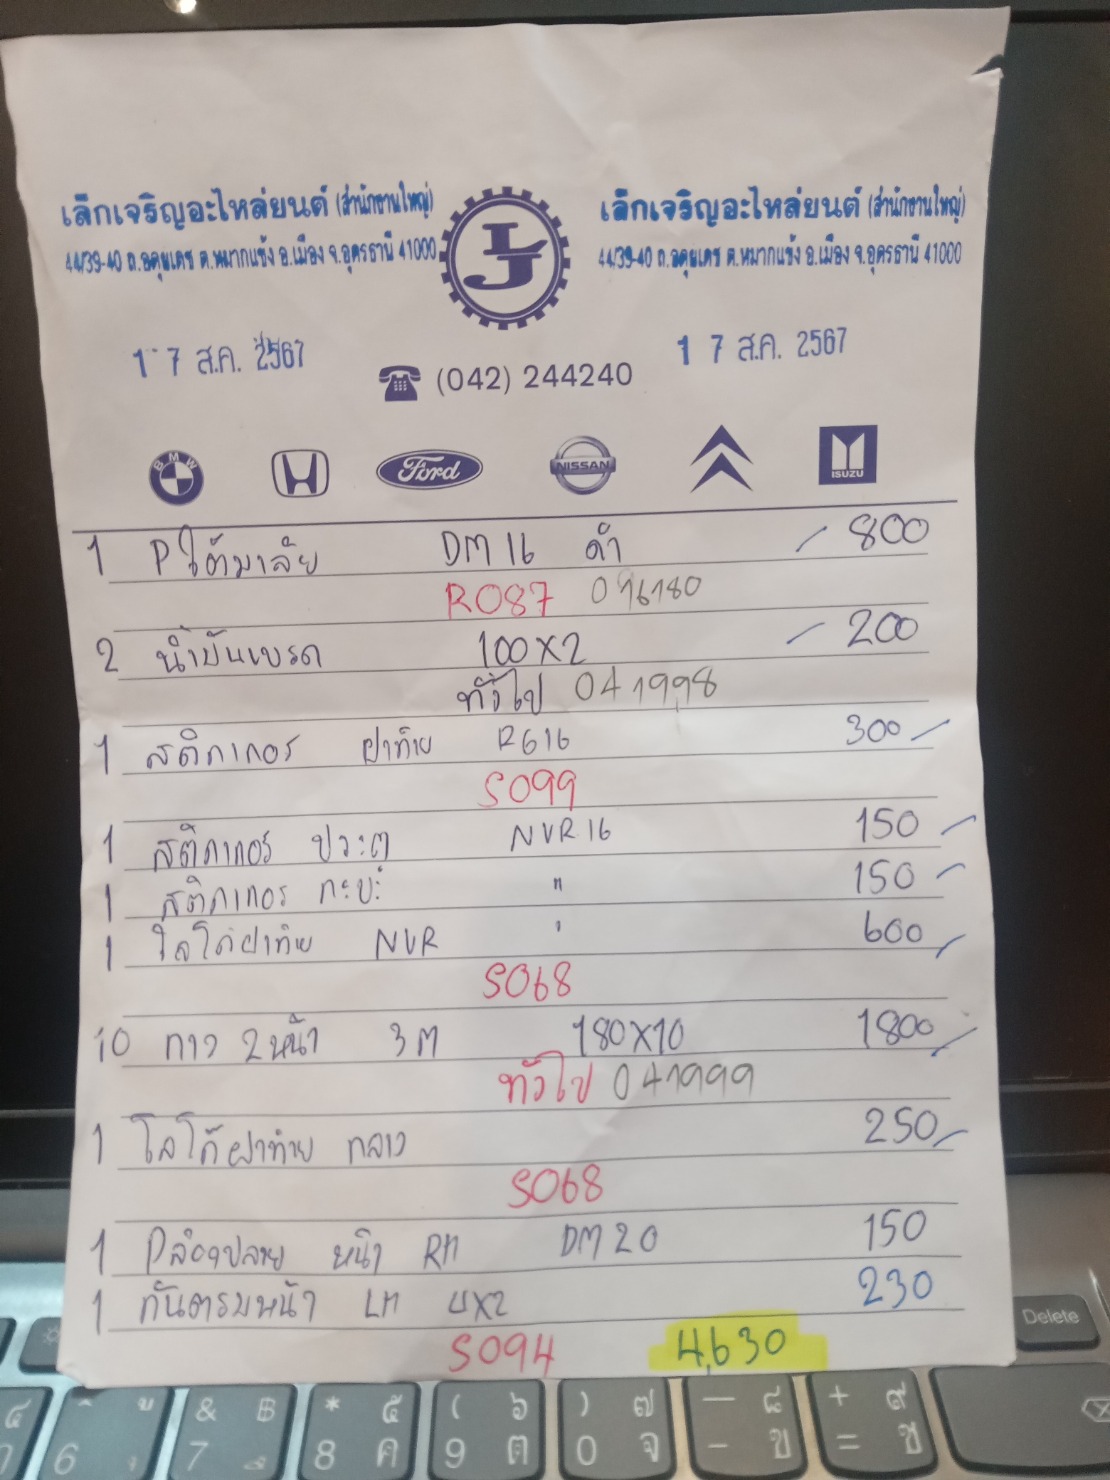 เล็กเจริญอะไหล่ยนต์ (สำนักงานใหญ่)
44/39-40 ถ.อดุยเดช ต.หมากแข้ง อ.เมือง จ.อุดรธานี 41000
LJ
เล็กเจริญอะไหล่ยนต์ (สำนักงานใหญ่)
44/39-40 ถ.อดุยเดช ต.หมากแข้ง อ.เมือง จ.อุดรธานี 41000
1 7 ส.ค. 2567
(042) 244240
1 7 ส.ค. 2567
BMW
Ford
NISSAN
ISUZU
1 P ใต้มาลัย DM 16 ดำ 800
R087 096180
2 น้ำมันเบรค 100X2 200
ทั่วไป 041998
1 สติกเกอร์ ฝาท้าย RG16 300
S099
1 สติกเกอร์ ประตู NVR 16 150
1 สติกเกอร์ กะบะ " 150
1 โลโก้ฝาท้าย NVR ' 600
S068
10 กาว 2 หน้า 3 M 180X10 1800
ทั่วไป 041999
1 โลโก้ฝาท้าย กลาง 250
S068
1 หน้า RH DM 20 150
1 หน้า LH 4X2 230
S094 4,630
Delete
6 & ฿ 7 * ๕ 8 ค ( ๖ 9 ต ) ๗ 0 จ — ๘ - ข + ๙ = ช